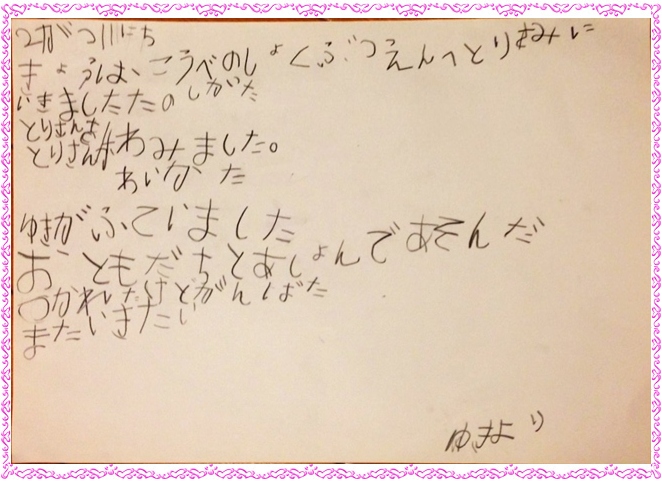 2がつ11にち
きょうは、こうべのしょくぶつえんへとりをみに
いきましたたのしかた
とりさんを
とりさんがわみました。
かいかた
ゆきがふていました
おともだちとあしょんであそんだ
つかれたけどがんばた
またいきたい
ゆきより